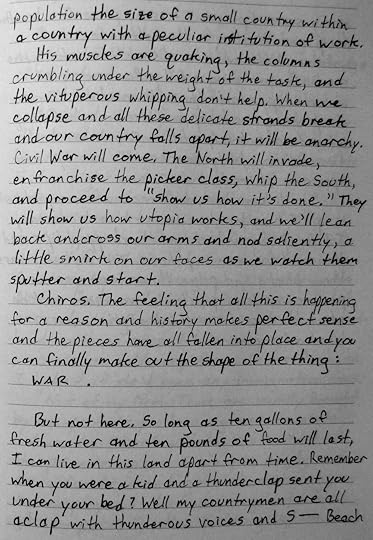 population the size of a small country within
a country with a peculiar institution of work.
His muscles are quaking, the columns
crumbling under the weight of the task, and
the vituperous whipping don't help. When we
collapse and all these delicate strands break
and our country falls apart, it will be anarchy.
Civil War will come. The North will invade,
enfranchise the picker class, whip the South,
and proceed to "show us how it's done." They
will show us how utopia works, and we'll lean
back andcross our arms and nod saliently, a
little smirk on our faces as we watch them
sputter and start.
Chiros. The feeling that all this is happening
for a reason and history makes perfect sense
and the pieces have all fallen into place and you
can finally make out the shape of the thing:
WAR .
But not here. So long as ten gallons of
fresh water and ten pounds of food will last,
I can live in this land apart from time. Remember
when you were a kid and a thunderclap sent you
under your bed? Well my countrymen are all
aclap with thunderous voices and S— Beach